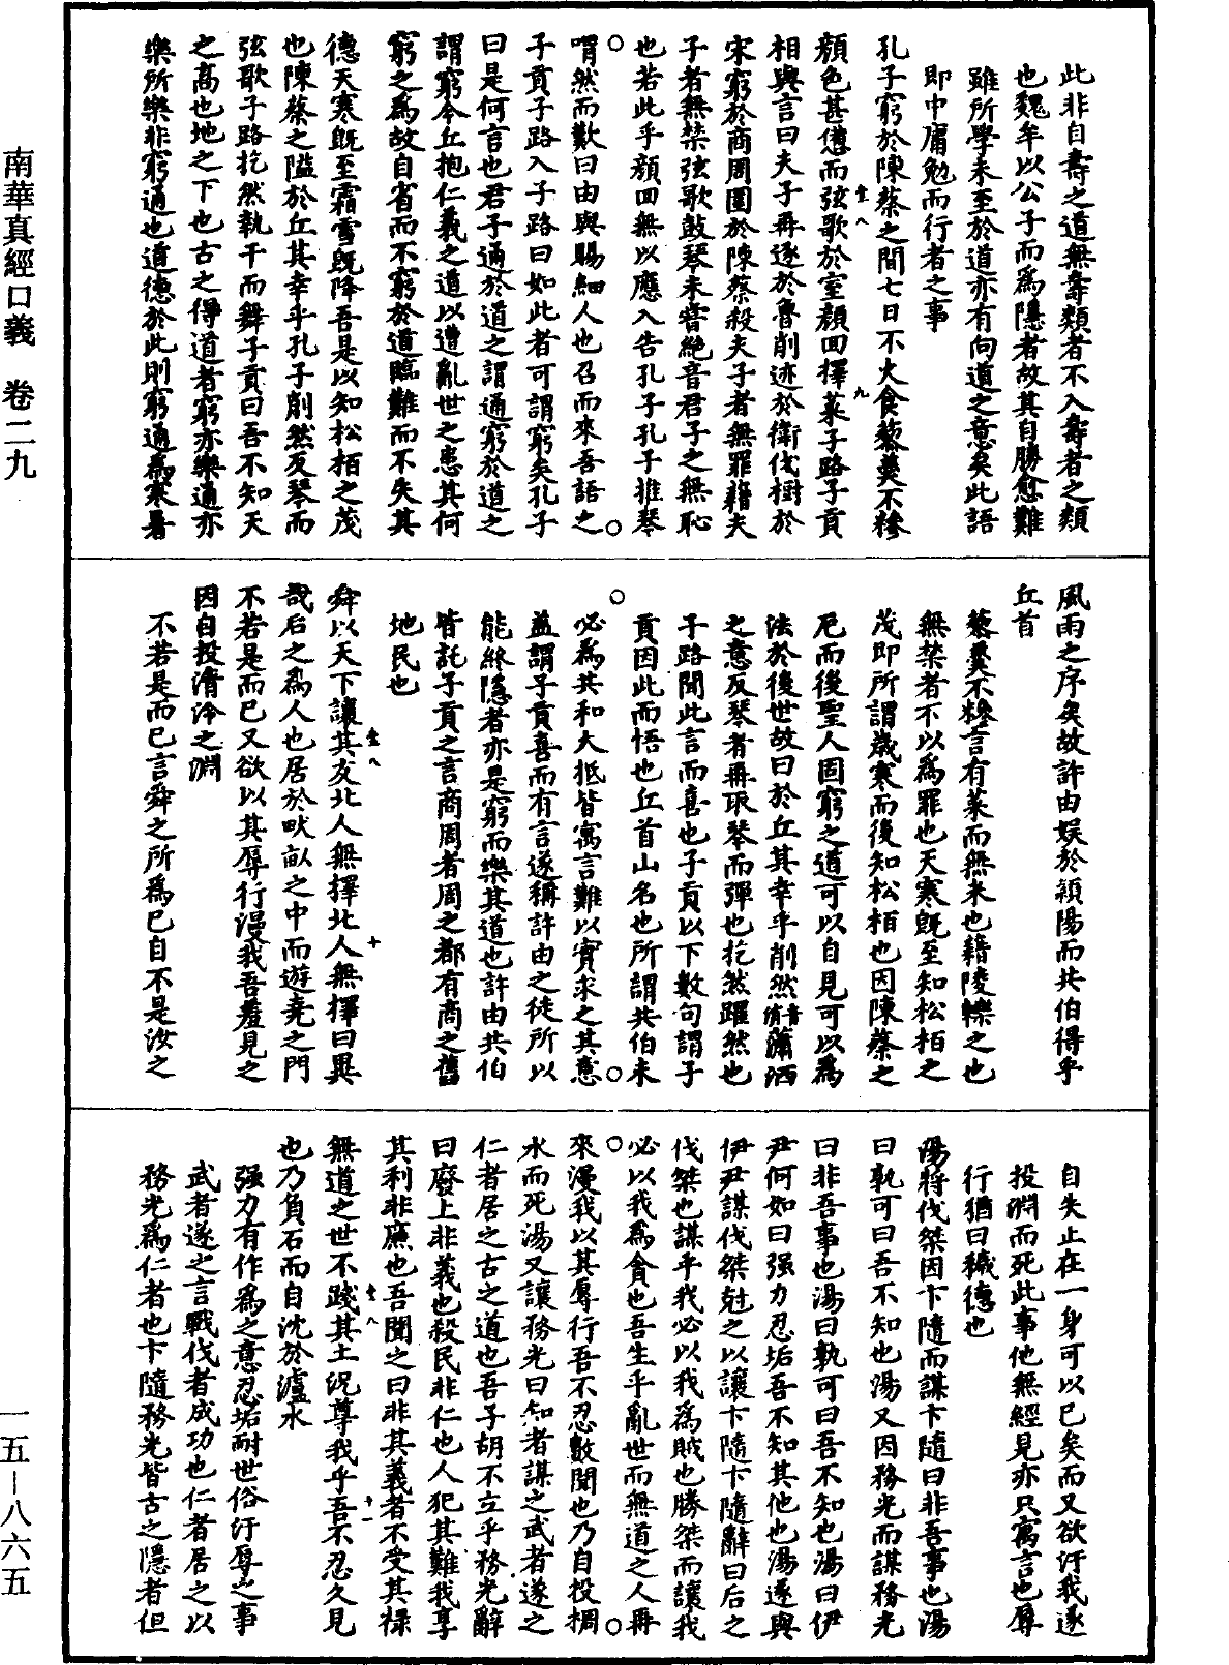 此非自壽之道無壽類者不入壽者之類
也魏牟以公子而為隱者故其自勝愈難
雖所學未至於道亦有向道之意矣此語
即中庸勉而行者之事
孔子窮於陳蔡之間七日不火食藜羹不糝
顏色甚憊而弦歌於室顏回擇菜子路子貢
相與言曰夫子再逐於魯削迹於衛伐樹於
宋窮於商周圍於陳蔡殺夫子者無罪藉夫
子者無禁弦歌鼓琴未嘗絕音君子之無恥
也若此乎顏回無以應入告孔子孔子推琴
喟然而歎曰由與賜細人也召而來吾語之
子貢子路入子路曰如此者可謂窮矣孔子
曰是何言也君子通於道之謂通窮於道之
謂窮今丘抱仁義之道以遭亂世之患其何
窮之為故自省而不窮於道臨難而不失其
德天寒既至霜雪既降吾是以知松栢之茂
也陳蔡之隘於丘其幸乎孔子削然反琴而
弦歌子路扢然執干而舞子貢曰吾不知天
之高也地之下也古之得道者窮亦樂通亦
樂所樂非窮通也道德於此則窮通為寒暑
風雨之序矣故許由娛於潁陽而共伯得乎
丘首
藜羹不糝言有菜而無米也藉陵轢之也
無禁者不以為罪也天寒既至知松栢之
茂即所謂歲寒而後知松栢也因陳蔡之
厄而後聖人固窮之道可以自見可以為
法於後世故曰於丘其幸乎削然音消蕭洒
之意反琴者再取琴而彈也扢然躍然也
子路聞此言而喜也子貢以下數句謂子
貢因此而悟也丘首山名也所謂共伯未
必為其和大抵皆寓言難以實求之其意
蓋謂子貢喜而有言遂稱許由之徒所以
能終隱者亦是窮而樂其道也許由共伯
皆託子貢之言商周者周之都有商之舊
地民也
舜以天下讓其友北人無擇北人無擇曰異
哉后之為人也居於畎畝之中而遊堯之門
不若是而已又欲以其辱行漫我吾羞見之
因自投清泠之淵
不若是而已言舜之所為已自不是汝之
自失止在一身可以已矣而又欲汙我遂
投淵而死此事他無經見亦只寓言也辱
行猶曰穢德也
湯將伐桀因卞隨而謀卞隨曰非吾事也湯
曰孰可曰吾不知也湯又因務光而謀務光
曰非吾事也湯曰孰可曰吾不知也湯曰伊
尹何如曰强力忍垢吾不知其他也湯遂與
伊尹謀伐桀尅之以讓卞隨卞隨辭曰后之
伐桀也謀乎我必以我為賊也勝桀而讓我
必以我為貪也吾生乎亂世而無道之人再
來漫我以其辱行吾不忍數聞也乃自投椆
水而死湯又讓務光曰知者謀之武者遂之
仁者居之古之道也吾子胡不立乎務光辭
曰廢上非義也殺民非仁也人犯其難我享
其利非廉也吾聞之曰非其義者不受其祿
無道之世不踐其土況尊我乎吾不忍久見
也乃負石而自沈於瀘水
强力有作為之意忍垢耐世俗汙辱之事
武者遂之言戰伐者成功也仁者居之以
務光為仁者也卞隨務光皆古之隱者但
南華真經口義　卷二九
一五—八六五